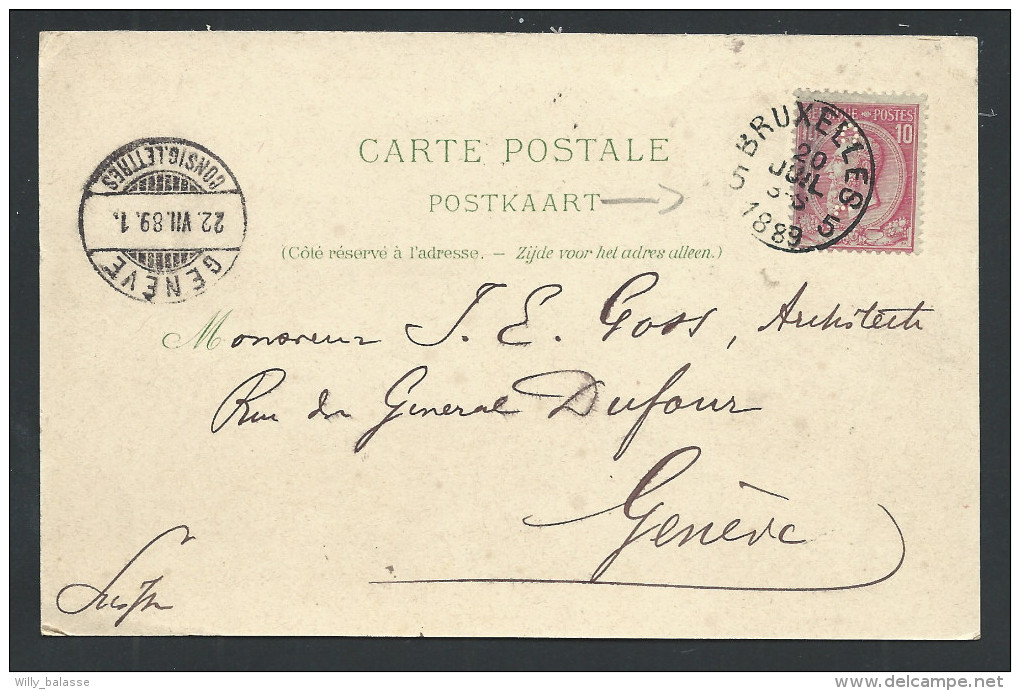 CARTE POSTALE
POSTKAART
(Côté réservé à l'adresse. — Zijde voor het adres alleen.)
BRUXELLES 5
20
JUIL
1889
5
POSTES
10
CONSIG.LETTRES
22. VII. 89. 1.
GENÈVE
Monsieur J. E. Goss, Architecte
Rue du General Dufour
Genève
Suisse
Willy_balasse
delcampe.net